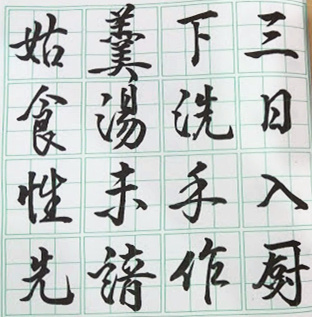 三日入厨
下洗手作
羹湯未諳
姑食性先